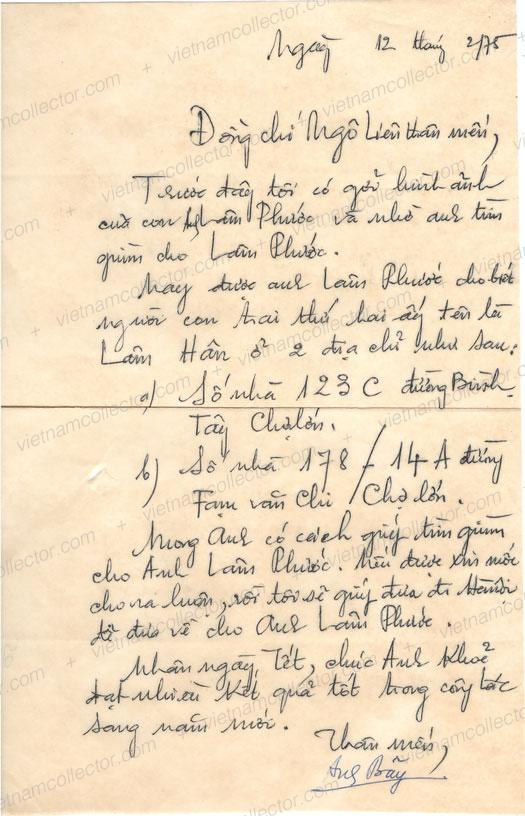 Ngày 12 tháng 2/75
Đồng chí Ngô Liên thân mến,
Trước đây tôi có gởi hình ảnh
của con Lâm Phước và nhờ anh tìm
giùm cho Lâm Phước.
Nay được anh Lâm Phước cho biết
người con trai thứ hai ấy tên là
Lâm Hân ở 2 địa chỉ như sau:
a) Số nhà 123 C đường Bình
Tây Chợ lớn.
b) Số nhà 178 - 14 A đường
Fạm văn Chi / Chợ lớn.
Mong Anh có cách giúp tìm giùm
cho Anh Lâm Phước. Nếu được xin mời
cho ra luôn, rồi tôi sẽ giúp đưa đi
để đưa về cho Anh Lâm Phước.
Nhân ngày Tết, chúc Anh khoẻ
đạt nhiều kết quả tốt trong công tác
sang năm mới.
Thân mến,
Anh Bảy
vietnamcollector.com